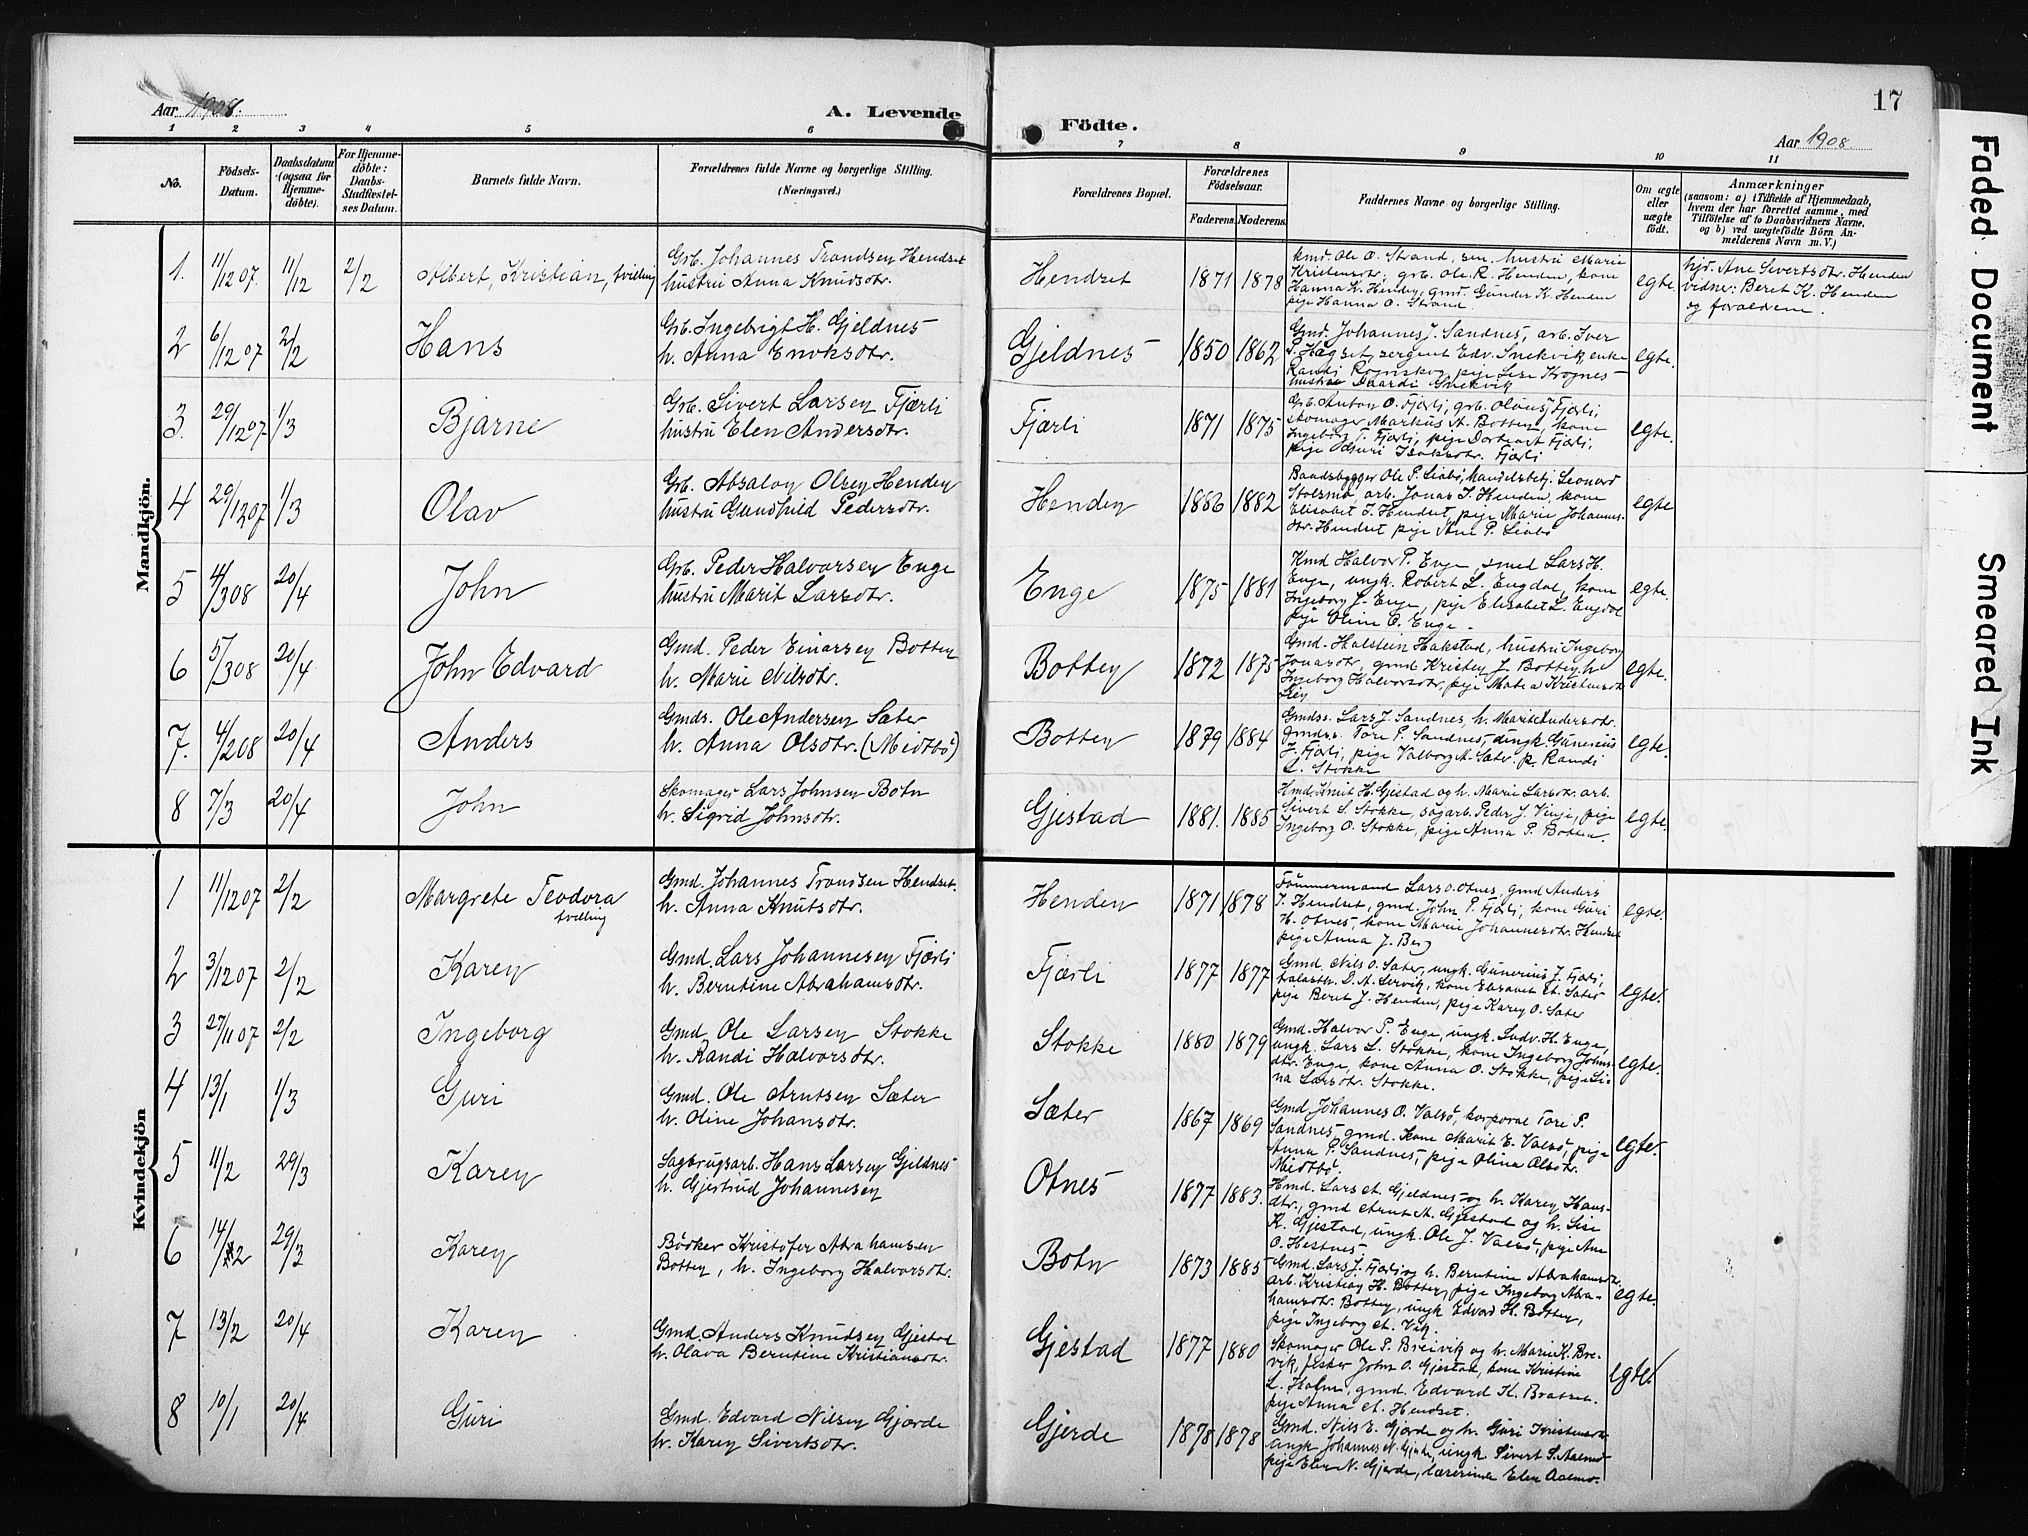 Aar 1908.
A. Levende Födte.
Aar 1908.
17
1 2 3 4 5 6 7 8 9 10 11
No.
Födsels-
Datum.
Daabsdatum
(ogsaa for
Hjemme-
döbte).
For Hjemme-
döbte:
Daabs-
Stadfæstel-
ses Datum.
Barnets fulde Navn.
Forældrenes fulde Navne og borgerlige Stilling.
(Næringsvei.)
Forældrenes Bopæl.
Forældrenes
Födselsaar.
Faderens. Moderens.
Faddernes Navne og borgerlige Stilling.
Om ægte
eller
uægte
födt.
Anmærkninger
(saasom: a) i Tilfælde af Hjemmedaab,
hvem der har forrettet samme, med
Tilföielse af to Daabsvidners Navne,
og b) ved uægtefödte Börn An-
melderens Navn m. V.)
Mandkjön.
1. 11/12 07. 11/12 2/2 Albert, Kristian, tvilling
Grb. Johannes Trondsen Hendset
hustru Anna Knudsdtr.
Hendset 1871 1878
kmd. Ole O. Strand, sm. hustru Marie
Kristensdtr. grb. Ole R. Henden, kone
Hanna K. Henden, gmd. Gunder K. Henden
pige Hanna O. Strand
egte.
hjd. Ane Sivertsdtr. Henden
vidner: Beret K. Henden
og forældrene.
2 6/12 07 2/2 Hans
Grb. Ingebrigt H. Gjeldnes
h. Anna Enoksdtr.
Gjeldnes 1850 1862
Gmd. Johannes J. Sandnes, arb. Iver
sergent Edv. Snekvik, enke
Randi Rognskog, pige Lise Krognes
hustru Snekvik
egte.
3. 29/12 07 1/3 Bjarne
Grb. Sivert Larsen Fjærli
hustru Elen Andersdtr.
Fjærli 1871 1875
Grb. Anton O. Fjærli, grb. Fjærli,
skomager Markus A. Botten, kone
Ingeborg T. Fjærli, pige Fjærli,
pige Guri Isaksdtr. Fjærli
egte.
4 29/12 07 1/3 Olav
Grb. Absalon Olsen Henden
hustru Gundhild Pedersdtr.
Henden 1886 1882
Baadsbygger Ole P. Liabø, Handelsbetj. Leonard
Stolsmo, arb. Jonas I. Henden, kone
Elisabet I. Hendset, pige Marie Johannes-
dtr. Hendset pige Ane P. Liabø
egte
5 4/3 08 20/4 John
Grb. Peder Halvorsen Enge
hustru Marit Larsdtr.
Enge 1875 1881
Kmd Halvor P. Enge, smed Lars H.
Enge, ungk. Robert L. Engdal, kone
Ingeborg J. Enge, pige Elisabet L. Engdal
pige Oline O. Enge.
egte.
6 5/3 08 20/4 John Edvard
Gmd. Peder Einarsen Botten
h. Marie Nilsdtr.
Botten 1872 1875
Gmd. Halstein Hakstad, hustru Ingeborg
Jonasdtr, gmd Kristen J. Botten, h.
Ingeborg Halvorsdtr, pige Kristensdtr
egte.
7. 4/2 08 20/4 Anders
Gmds. Ole Andersen Sæter
h. Anna Olsdtr. (Midtbö)
Botten 1879 1884
Gmdss. Lars J. Sandnes, h. Marit Andersdtr.
gmdss. Tore P. Sandnes, ungk. Gunerius
J. Fjærli, pige Valborg A. Sæter p. Randi
L. Stokke
egte.
8 7/3 20/4 John
Skomager Lars Johnsen Botn
h. Sigrid Johnsdtr.
Gjestad 1881. 1885
Hmd. Knut H. Gjestad og h. Marie Larsdtr. arb.
Sivert L. Stokke, sagarb. Peder J. Vinje, pige
Ingeborg O. Stokke, pige Anna P. Botten.
egte.
Kvindekjön
1 11/12 07 2/2 Margrete Teodora
tvilling
Gmd. Johannes Trondsen Hendset.
h. Anna Knutsdtr.
Henden 1871 1878
Tömmermand Lars O. Otnes, gmd Anders
I. Hendset, gmd. John P. Fjærli, kone Guri
H. Otnes, kone Marie Johannesdtr. Hendset
pige Anna J. Berg
egte.
2 3/12 07 2/2 Karen
Gmd. Lars Johannesen Fjærli
h. Berntine Abrahamsdtr.
Fjærli 1877 1877
Gmd. Nils O. Sæter, ungk. Gunerius J. Fjærli,
A. Lervik, kone Elisabet A. Sæter
pige Beret J. Henden, pige Karen O. Sæter
egte.
3 27/11 07 2/2 Ingeborg
Gmd. Ole Larsen Stokke
h. Randi Halvorsdtr.
Stokke 1880 1879
Gmd. Halvor P. Enge, ungk. Ludv. H. Enge,
ungk. Lars L. Stokke, kone Ingeborg Johns-
dtr. Enge, kone Anna O. Stokke, pige Li-
na Larsdtr. Stokke.
egte.
4 13/1 1/3 Guri
Gmd. Ole Arntsen Sæter
h. Oline Johansdtr.
Sæter 1867 1869
Gmd Johannes O. Valsö, korporal Tore P.
Sandnes gmd. kone Marit E. Valsö, pige
Anna P. Sandnes, pige Olina Olsdtr.
Midtbö.
egte.
5 11/2 29/3 Karen
Sagbrugsarb. Hans Larsen Gjeldnes
h. Gjertrud Johannesen
Otnes 1877 1883.
Hmd. Lars A. Gjeldnes og h. Karen Hans-
dtr., gmd Arnt A. Gjestad og h. Lise
K. Gjestad, ungk. Ole J. Valsö, pige Ane
O. Hestnes
6 14/2 29/3 Karen
Bödker Kristofer Abrahamsen
Botten, h. Ingeborg Halvorsdtr.
Botn 1873 1885
Gmd. Lars J. Fjærli og h. Berntine Abrahamsdtr.
arb. Kristian H. Botten, pige Ingeborg Abra-
hamsdtr. Botten, ungk Edvard K. Botten,
pige Ingeborg A. Vik.
egte.
7 13/2 20/4 Karen
Gmd. Anders Knudsen Gjestad
h. Olava Berntine Kristiansdtr.
Gjestad 1877 1880
Skomager Ole P. Breivik og h. Marie K. Bre-
vik, fisker John O. Gjestad, kone Kristine
L. Holm, gmd. Edvard K. Bratset.
pige Anna A. Hendset.
egte.
8 10/1 20/4 Guri
Gmd. Edvard Nilsen Gjerde
h. Karen Sivertsdtr.
Gjerde 1878 1878
Gmd. Nils E. Gjerde og h. Guri Kristensdtr
ungk Johannes N. Gjerde, ungk. Sivert S. Aasmo
pige Elen N. Gjerde, lærerinde Elen Aasmo.
Faded Document
Smeared Ink